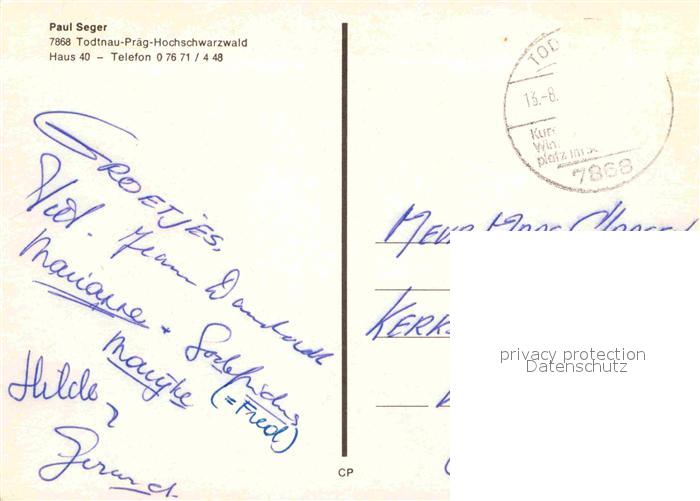 Paul Seger
7868 Todtnau-Präg-Hochschwarzwald
Haus 40 – Telefon 0 76 71 / 4 48
TOD
13.-8.
Kur
Win
platz im
7868
GROETJES,
Jean
Marianne + Godefridus
Marijke (=Fred)
Hilde
Gerard
MEVR
KERKS
privacy protection
Datenschutz
CP